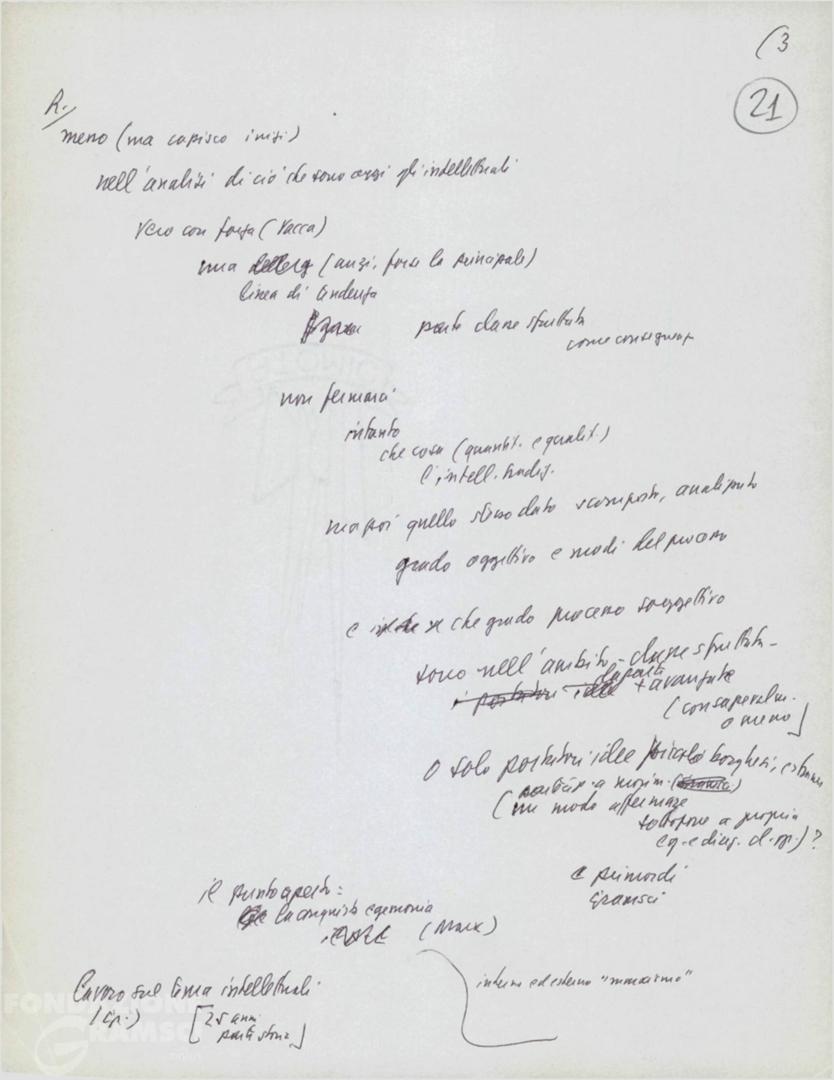 (3
21
R.
meno (ma capisco inizi)
nell'analisi di ciò che sono oggi gli intellettuali
Vero con forza (Vacca)
una (anzi, forse la principale)
linea di tendenza
parte classe sfruttata
come conseguenza
non fermarci
intanto
che cosa (quantit. e qualit.)
l'intell. tradiz.
ma poi quello stesso dato scomposto, analizzato
grado oggettivo e modi del processo
e che grado processo soggettivo
sono nell'ambito - classe sfruttata -
la parte
+ avanzate
(consapevolm.
o meno]
o solo portatori idee piccolo borghesi,
(
un modo affermare
sottoporre a propria
eg. e direz. d. op.) ?
e primordi
Gramsci
il punto aperto:
la conquista egemonia
(Marx)
Lavoro sul tema intellettuali
[25 anni
interno ed esterno "marxismo"
FONDAZIONE
GRAMSCI